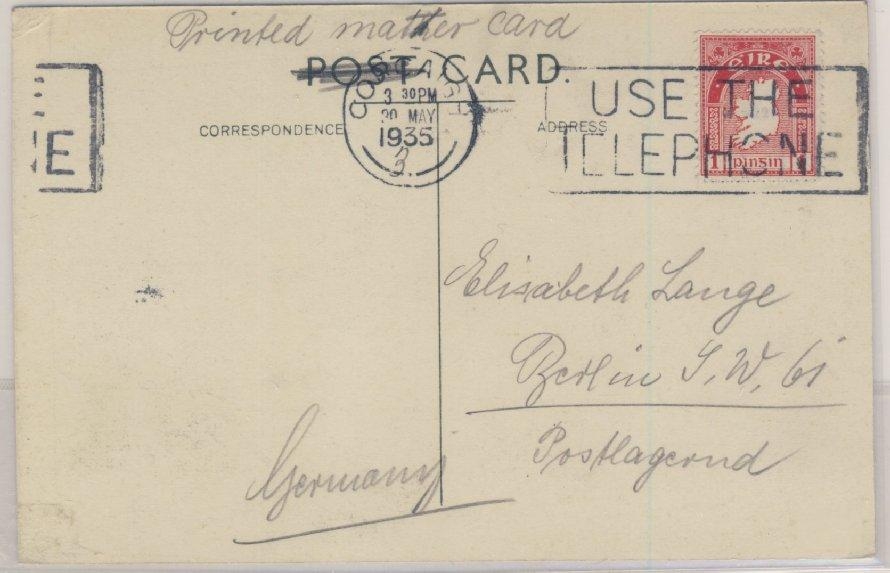 Printed matter card
POST CARD.
3 30PM
20 MAY
1935
USE THE
TELEPHONE
E
CORRESPONDENCE
ADDRESS
EIRE
1 pinsin 1
Elisabeth Lange
Berlin S.W. 61
Postlagernd
Germany